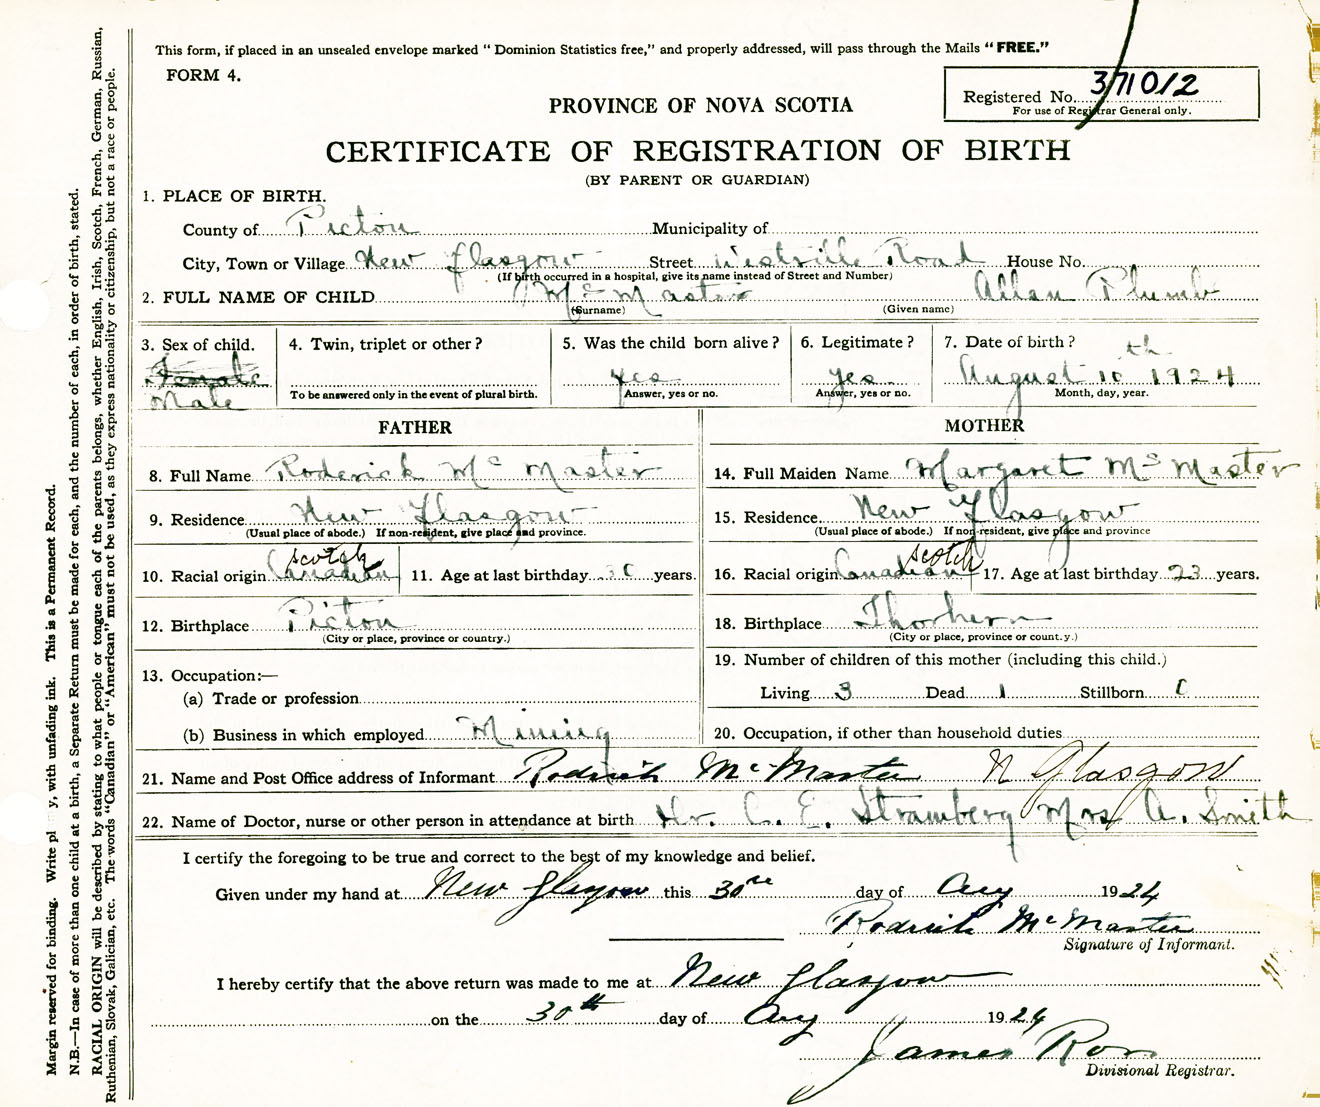 This form, if placed in an unsealed envelope marked " Dominion Statistics free," and properly addressed, will pass through the Mails "FREE."
FORM 4.
Registered No. 371012
For use of Registrar General only.
PROVINCE OF NOVA SCOTIA
CERTIFICATE OF REGISTRATION OF BIRTH
(BY PARENT OR GUARDIAN)
1. PLACE OF BIRTH.
County of Pictou Municipality of
City, Town or Village New Glasgow Street Westville Road House No.
(If birth occurred in a hospital, give its name instead of Street and Number)
2. FULL NAME OF CHILD McMaster Allan Plumb
(Surname) (Given name)
3. Sex of child. 4. Twin, triplet or other? 5. Was the child born alive? 6. Legitimate? 7. Date of birth?
Female yes yes August 10th 1924
Male To be answered only in the event of plural birth. Answer, yes or no. Answer, yes or no. Month, day, year.
FATHER MOTHER
8. Full Name Roderick McMaster 14. Full Maiden Name Margaret McMaster
9. Residence New Glasgow 15. Residence New Glasgow
(Usual place of abode.) If non-resident, give place and province. (Usual place of abode.) If non-resident, give place and province
Scotch Scotch
10. Racial origin Canadian 11. Age at last birthday 30 years. 16. Racial origin Canadian 17. Age at last birthday 23 years.
12. Birthplace Pictou 18. Birthplace Thorburn
(City or place, province or country.) (City or place, province or count.y.)
13. Occupation:— 19. Number of children of this mother (including this child.)
(a) Trade or profession Living 3 Dead 1 Stillborn
(b) Business in which employed Mining 20. Occupation, if other than household duties
21. Name and Post Office address of Informant Roderick McMaster N Glasgow
22. Name of Doctor, nurse or other person in attendance at birth Dr. C. E. Stramberg Mrs A. Smith
I certify the foregoing to be true and correct to the best of my knowledge and belief.
Given under my hand at New Glasgow this 30 day of Aug 1924
Roderick McMaster
Signature of Informant.
I hereby certify that the above return was made to me at New Glasgow
on the 30th day of Aug 1924
James Ross
Divisional Registrar.
Margin reserved for binding. Write pl y, with unfading ink. This is a Permanent Record.
N.B.—In case of more than one child at a birth, a Separate Return must be made for each, and the number of each, in order of birth, stated.
RACIAL ORIGIN will be described by stating to what people or tongue each of the parents belongs, whether English, Irish, Scotch, French, German, Russian,
Ruthenian, Slovak, Galician, etc. The words "Canadian" or "American" must not be used, as they express nationality or citizenship, but not a race or people.